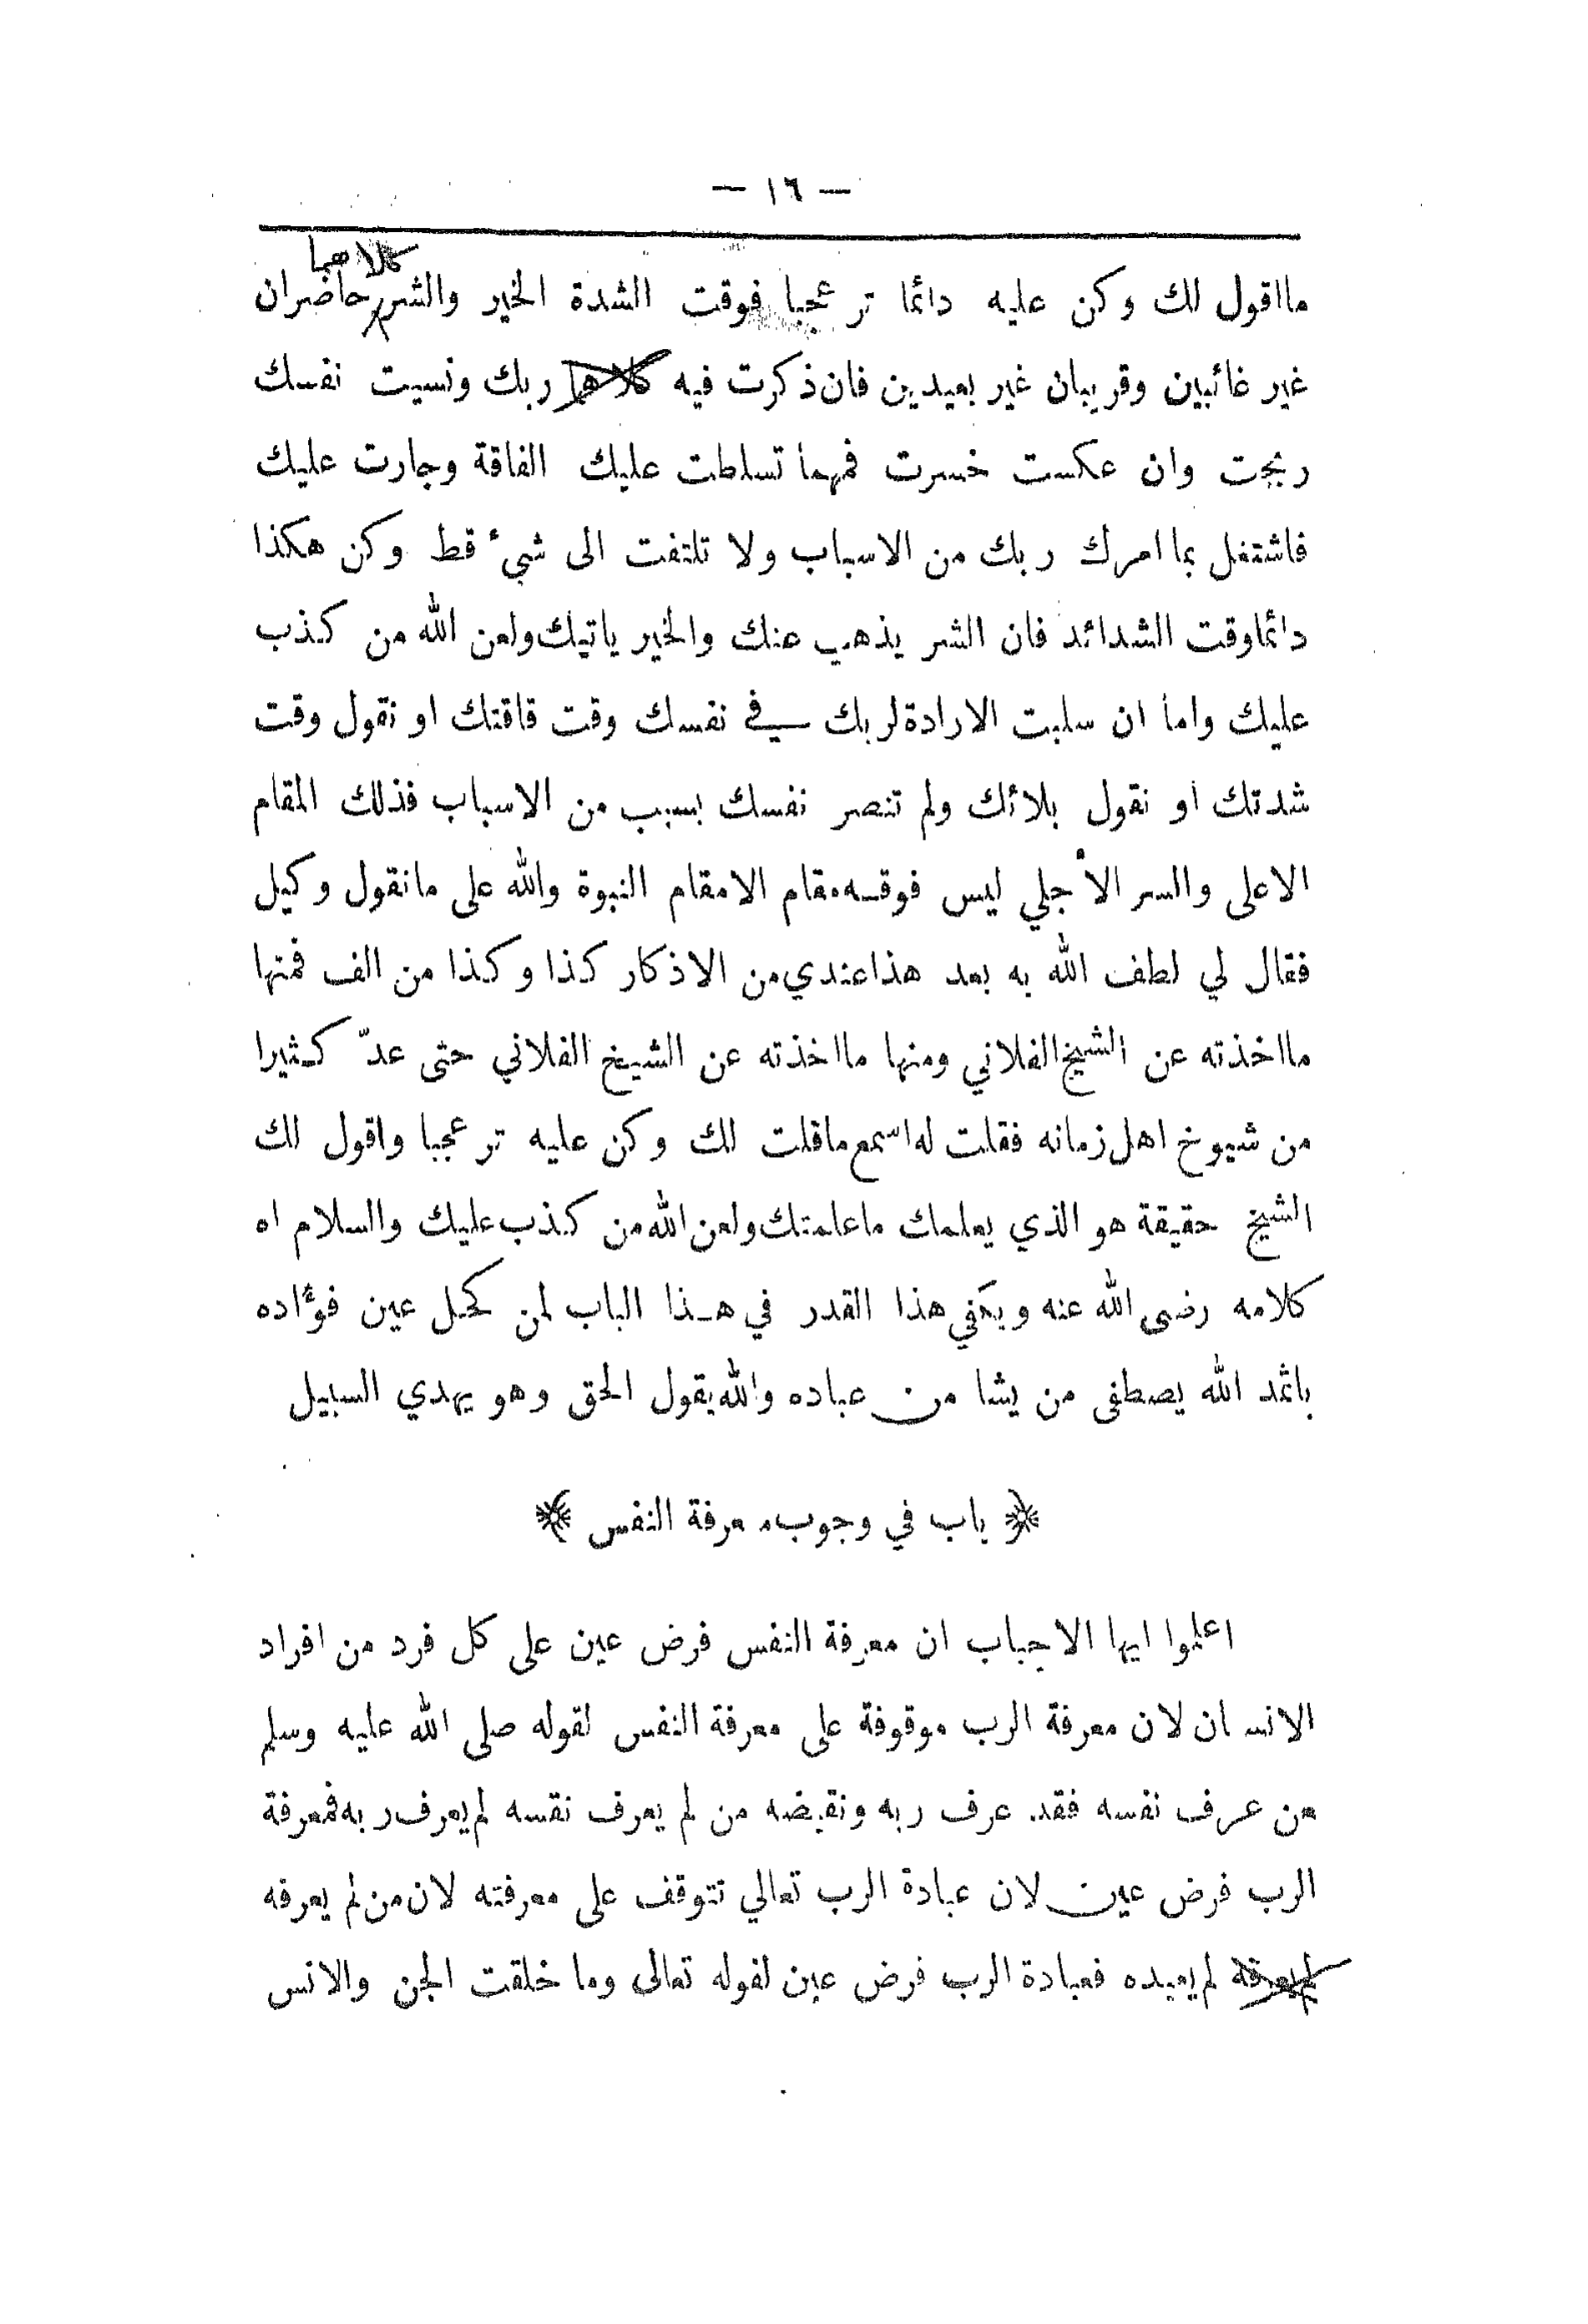 — ١٦ —
كلاهما
مااقول لك وكن عليه دائما تر عجبا فوقت الشدة الخير والشر حاضران
غير غائبين وقريبان غير بعيدين فان ذكرت فيه كلاهما ربك ونسيت نفسك
ربحت وان عكست خسرت فمهما تسلطت عليك الفاقة وجارت عليك
فاشتغل بما امرك ربك من الاسباب ولا تلتفت الى شيء قط وكن هكذا
دائما وقت الشدائد فان الشر يذهب عنك والخير ياتيك ولعن الله من كذب
عليك واما ان سلبت الارادة لربك في نفسك وقت فاقتك او نقول وقت
شدتك او نقول بلائك ولم تنصر نفسك بسبب من الاسباب فذلك المقام
الاعلى والسر الأجلي ليس فوقه مقام الا مقام النبوة والله على مانقول وكيل
فقال لي لطف الله به بعد هذا عندي من الاذكار كذا وكذا من الف فمنها
مااخذته عن الشيخ الفلاني ومنها مااخذته عن الشيخ الفلاني حتى عدّ كثيرا
من شيوخ اهل زمانه فقلت له اسمع ماقلت لك وكن عليه تر عجبا واقول لك
الشيخ حقيقة هو الذي يعلمك ماعلمتك ولعن الله من كذب عليك والسلام اه
كلامه رضى الله عنه ويكفي هذا القدر في هذا الباب لمن كحل عين فؤاده
باثمد الله يصطفى من يشا من عباده والله يقول الحق وهو يهدي السبيل
﴿ باب في وجوب معرفة النفس ﴾
اعلموا ايها الاحباب ان معرفة النفس فرض عين على كل فرد من افراد
الانسان لان معرفة الرب موقوفة على معرفة النفس لقوله صلى الله عليه وسلم
من عرف نفسه فقد عرف ربه ونقيضه من لم يعرف نفسه لم يعرف ربه فمعرفة
الرب فرض عين لان عبادة الرب تعالي تتوقف على معرفته لان من لم يعرفه
لم يعرفه لم يعبده فعبادة الرب فرض عين لقوله تعالى وما خلقت الجن والانس